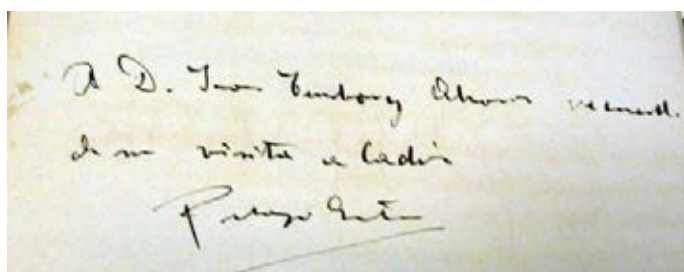 A D. Juan Temboury Alvarez recuerdo
de su visita a Cadiz
Pelayo Quintero